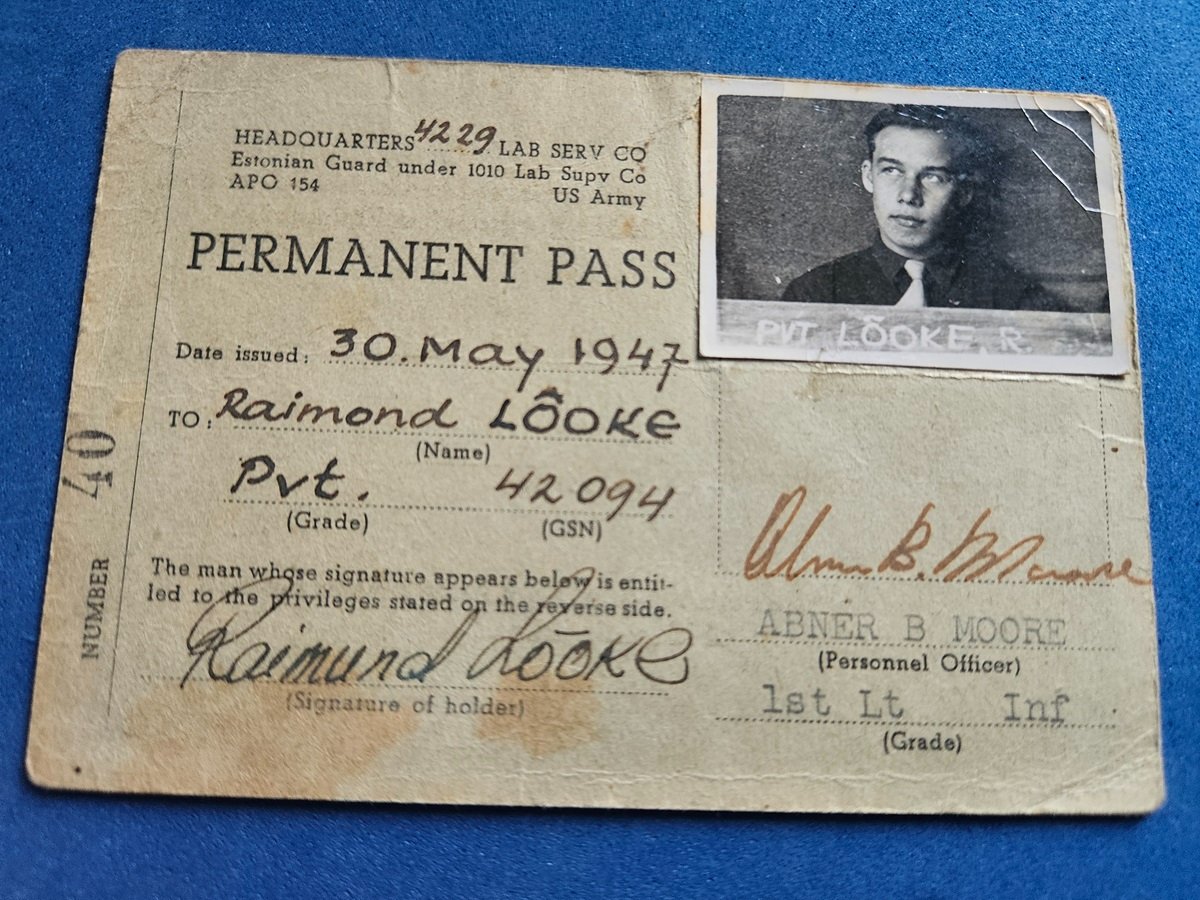 HEADQUARTERS 4229 LAB SERV CO
Estonian Guard under 1010 Lab Supv Co
APO 154 US Army
PERMANENT PASS
Date issued: 30. May 1947
TO: Raimond LÕOKE
(Name)
Pvt. 42094
(Grade) (GSN)
The man whose signature appears below is entit-
led to the privileges stated on the reverse side.
Raimund Lōōke
(Signature of holder)
NUMBER 40
PVT LÕOKE, R.
Abner B. Moore
ABNER B MOORE
(Personnel Officer)
1st Lt Inf
(Grade)